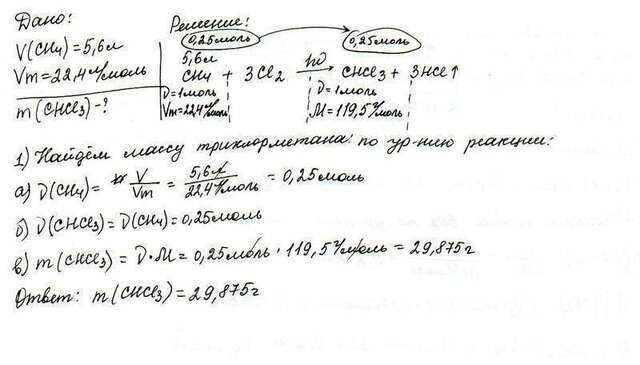 Дано:
V(CH4)=5,6л
Vm=22,4л/моль
m(CHCl3)-?
Решение:
0,25моль 0,25моль
5,6л
CH4 + 3Cl2 hν→ CHCl3 + 3HCl↑
ν=1моль ν=1моль
Vm=22,4л/моль M=119,5г/моль
1) Найдём массу трихлорметана: по ур-нию реакции:
а) ν(CH4)= V/Vm = 5,6л/22,4л/моль = 0,25моль
б) ν(CHCl3)=ν(CH4)=0,25моль
в) m(CHCl3)=ν·M=0,25моль·119,5г/моль=29,875г
Ответ: m(CHCl3)=29,875г